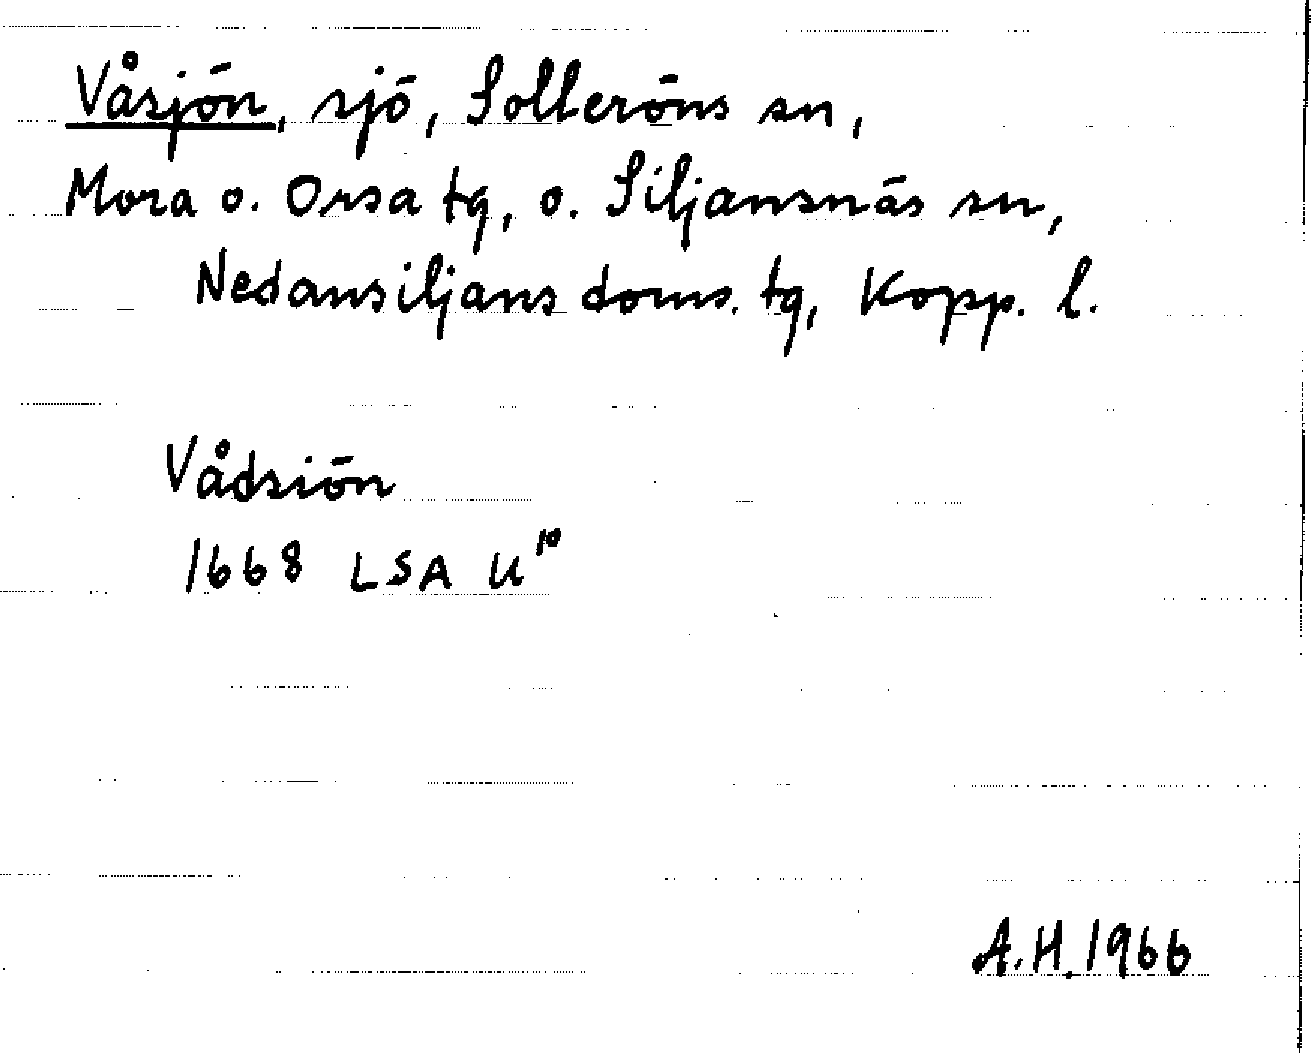 Våsjön, sjö, Solleröns sn,
Mora o. Orsa tg, o. Siljansnäs sn,
Nedansiljans doms. tg, Kopp. l.
Vådsiön
1668 LSA U¹⁰
A.H. 1966